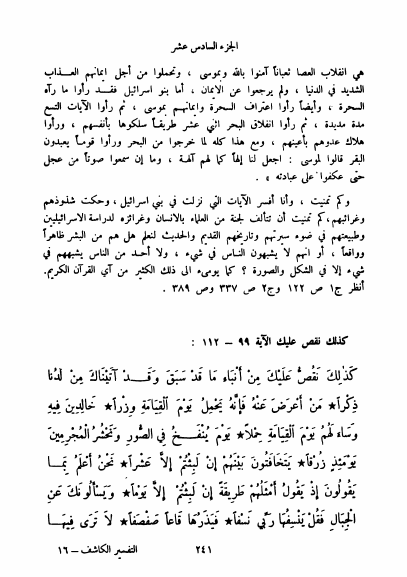 الجزء السادس عشر
هي انقلاب العصا ثعباناً آمنوا بالله وبموسى ، وتحملوا من أجل ايمانهم العــذاب
الشديد في الدنيا ، ولم يرجعوا عن الايمان ، أما بنو اسرائيل فقــد رأوا ما رآه
السحرة ، وأيضاً رأوا اعتراف السحرة وايمانهم بموسى ، ثم رأوا الآيات التسع
مدة مديدة ، ثم رأوا انفلاق البحر اثني عشر طريقاً سلكوها بأنفسهم ، ورأوا
هلاك عدوهم بأعينهم ، ومع هذا كله لما خرجوا من البحر ورأوا قوماً يعبدون
البقر قالوا لموسى : اجعل لنا إلهاً كما لهم آلهة ، وما إن سمعوا صوتاً من عجل
حتى عكفوا على عبادته » .
وكم تمنيت ، وأنا أفسر الآيات التي نزلت في بني اسرائيل ، وحكت شذوذهم
وغرائبهم، كم تمنيت أن تتألف لجنة من العلماء بالانسان وغرائزه لدراسة الاسرائيليين
وطبيعتهم في ضوء سيرتهم وتاريخهم القديم والحديث لنعلم هل هم من البشر ظاهراً
وواقعاً ، أو انهم لا يشبهون الناس في شيء ، ولا أحــد من الناس يشبههم في
شيء إلا في الشكل والصورة ؟ كما يومىء الى ذلك الكثير من آي القرآن الكريم.
أنظر ج١ ص ١٢٢ وج٢ ص ٣٣٧ وص ٣٨٩ .
كذلك نقص عليك الآية ٩٩ – ١١٢ :
كَذَلِكَ نَقُصُّ عَلَيْكَ مِنْ أَنْبَاءِ مَا قَدْ سَبَقَ وَقَــدْ آتَيْنَاكَ مِنْ لَدُنَّا
ذِكْراً★ مَنْ أَعْرَضَ عَنْهُ فَإِنَّهُ يَحْمِلُ يَوْمَ الْقِيَامَةِ وِزْراً★ خَالِدِينَ فِيهِ
وَسَاءَ لَهُمْ يَوْمَ الْقِيَامَةِ حِمْلاً★ يَوْمَ يُنْفَــخُ فِي الصُّورِ وَنَحْشُرُ الْمُجْرِمِينَ
يَوْمَئِذٍ زُرْقاً★ يَتَخَافَتُونَ بَيْنَهُمْ إِنْ لَبِثْتُمْ إِلَّا عَشْراً★ نَحْنُ أَعْلَمُ بِمَــا
يَقُولُونَ إِذْ يَقُولُ أَمْثَلُهُمْ طَرِيقَةً إِنْ لَبِثْتُمْ إِلَّا يَوْماً★ وَيَسْأَلُونَكَ عَنِ
الْجِبَالِ فَقُلْ يَنْسِفُهَا رَبِّي نَسْفاً★ فَيَذَرُهَا قَاعاً صَفْصَفاً★ لَا تَرَى فِيهَــا
٢٤١
التفسير الكاشف – ١٦